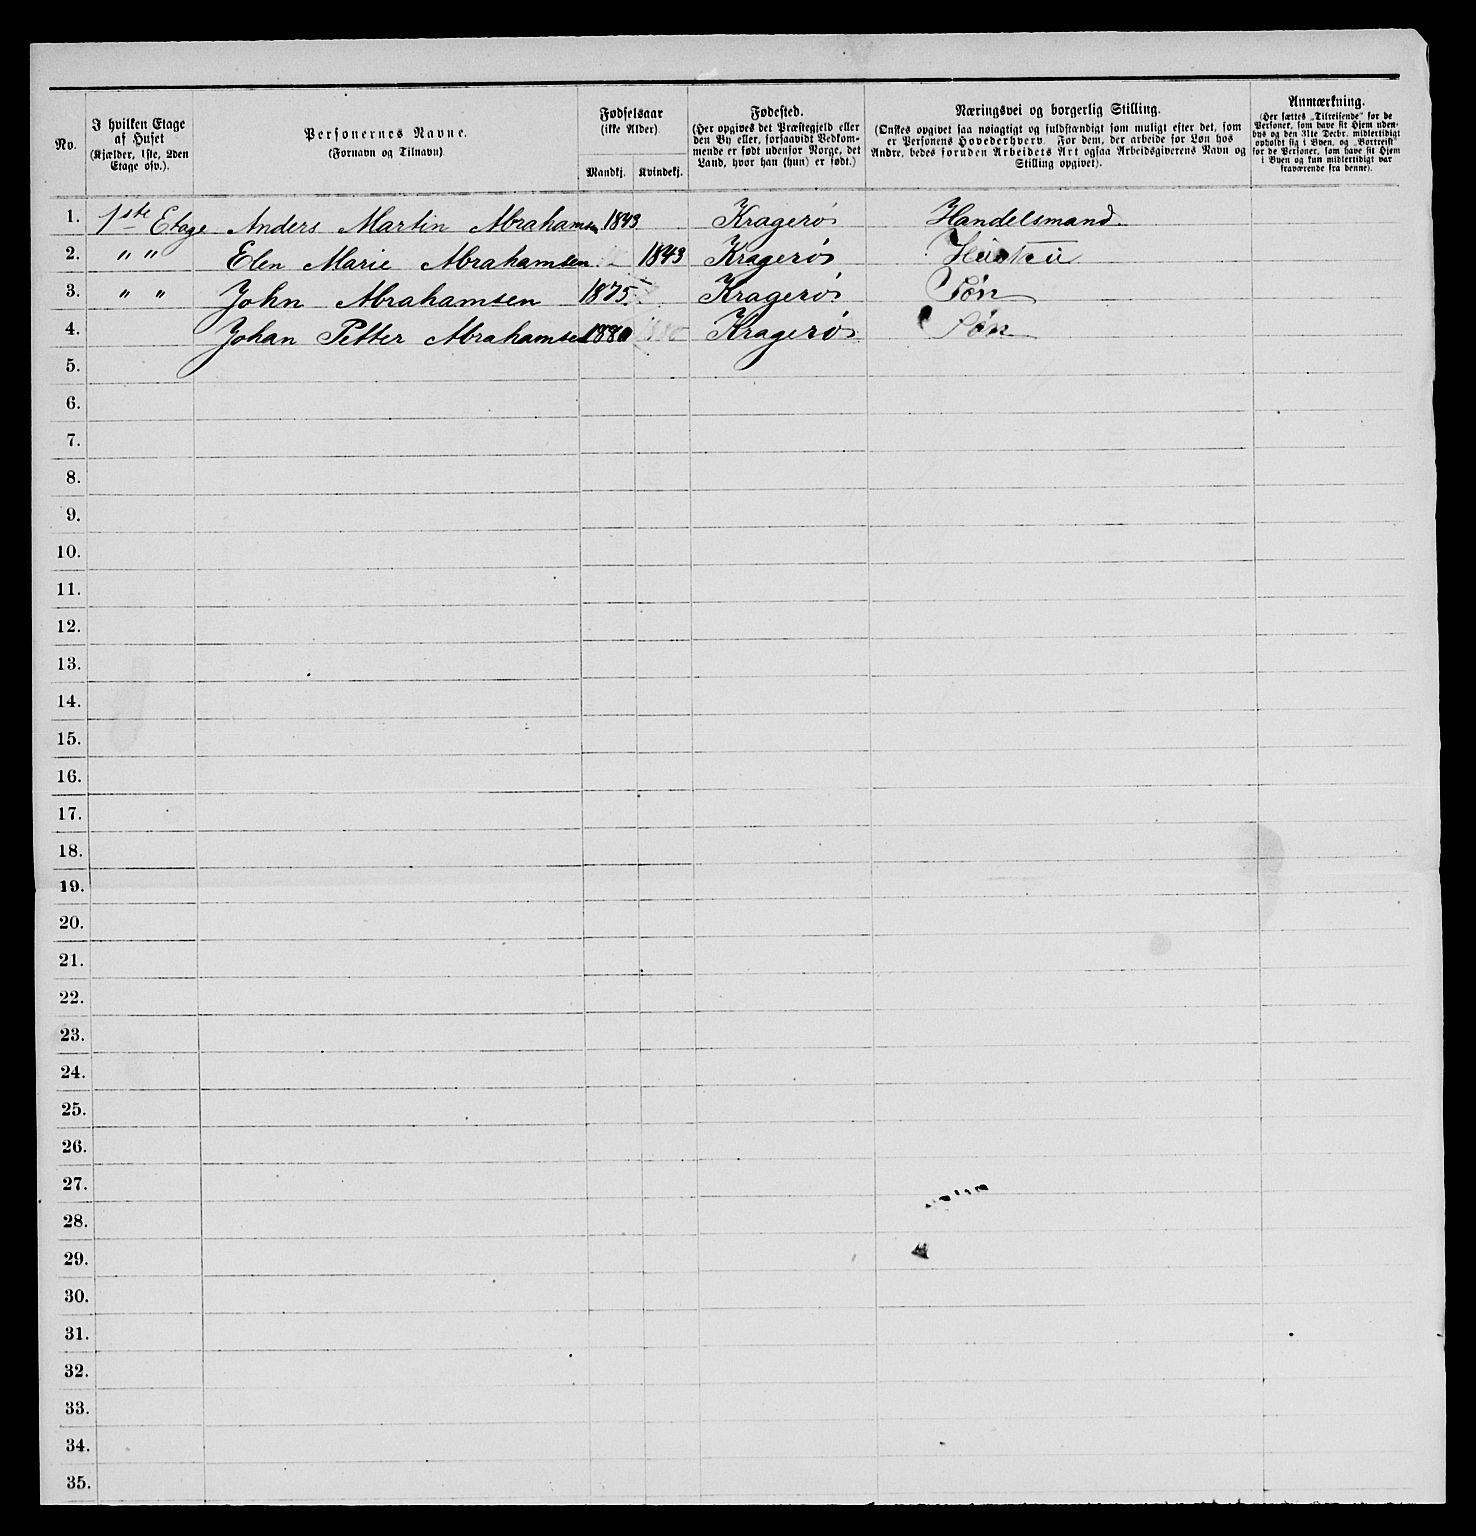 No.
I hvilken Etage
af Huset
(Kjælder, 1ste, 2den
Etage osv.).
Personernes Navne.
(Fornavn og Tilnavn)
Fødselsaar
(ikke Alder).
Mandkj. Kvindekj.
Fødested.
(Her opgives det Præstegjeld eller
den By eller, forsaavidt Vedkom-
mende er født udenfor Norge, det
Land, hvor han (hun) er født.)
Næringsvei og borgerlig Stilling.
(Ønskes opgivet saa nøiagtigt og fuldstændigt som muligt efter det, som
er Personens Hovederhverv. For dem, der arbeide for Løn hos
Andre, bedes foruden Arbeidets Art ogsaa Arbeidsgiverens Navn og
Stilling opgivet).
Anmærkning.
(Her sættes „Tilreisende“ for de
Personer, som have sit Hjem uden-
bys og den 31te Decbr. midlertidigt
opholdt sig i Byen, og „Bortreist“
for de Personer, som have sit Hjem
i Byen og kun midlertidigt var
fraværende fra denne).
1. 1ste Etage Anders Martin Abrahamsen 1843 Kragerø Handelsmand
2. " " Elen Marie Abrahamsen 1843 Kragerø Hustru
3. " " John Abrahamsen 1875 Kragerø Søn
4. Johan Petter Abrahamsen 1880 Kragerø Søn
5.
6.
7.
8.
9.
10.
11.
12.
13.
14.
15.
16.
17.
18.
19.
20.
21.
22.
23.
24.
25.
26.
27.
28.
29.
30.
31.
32.
33.
34.
35.